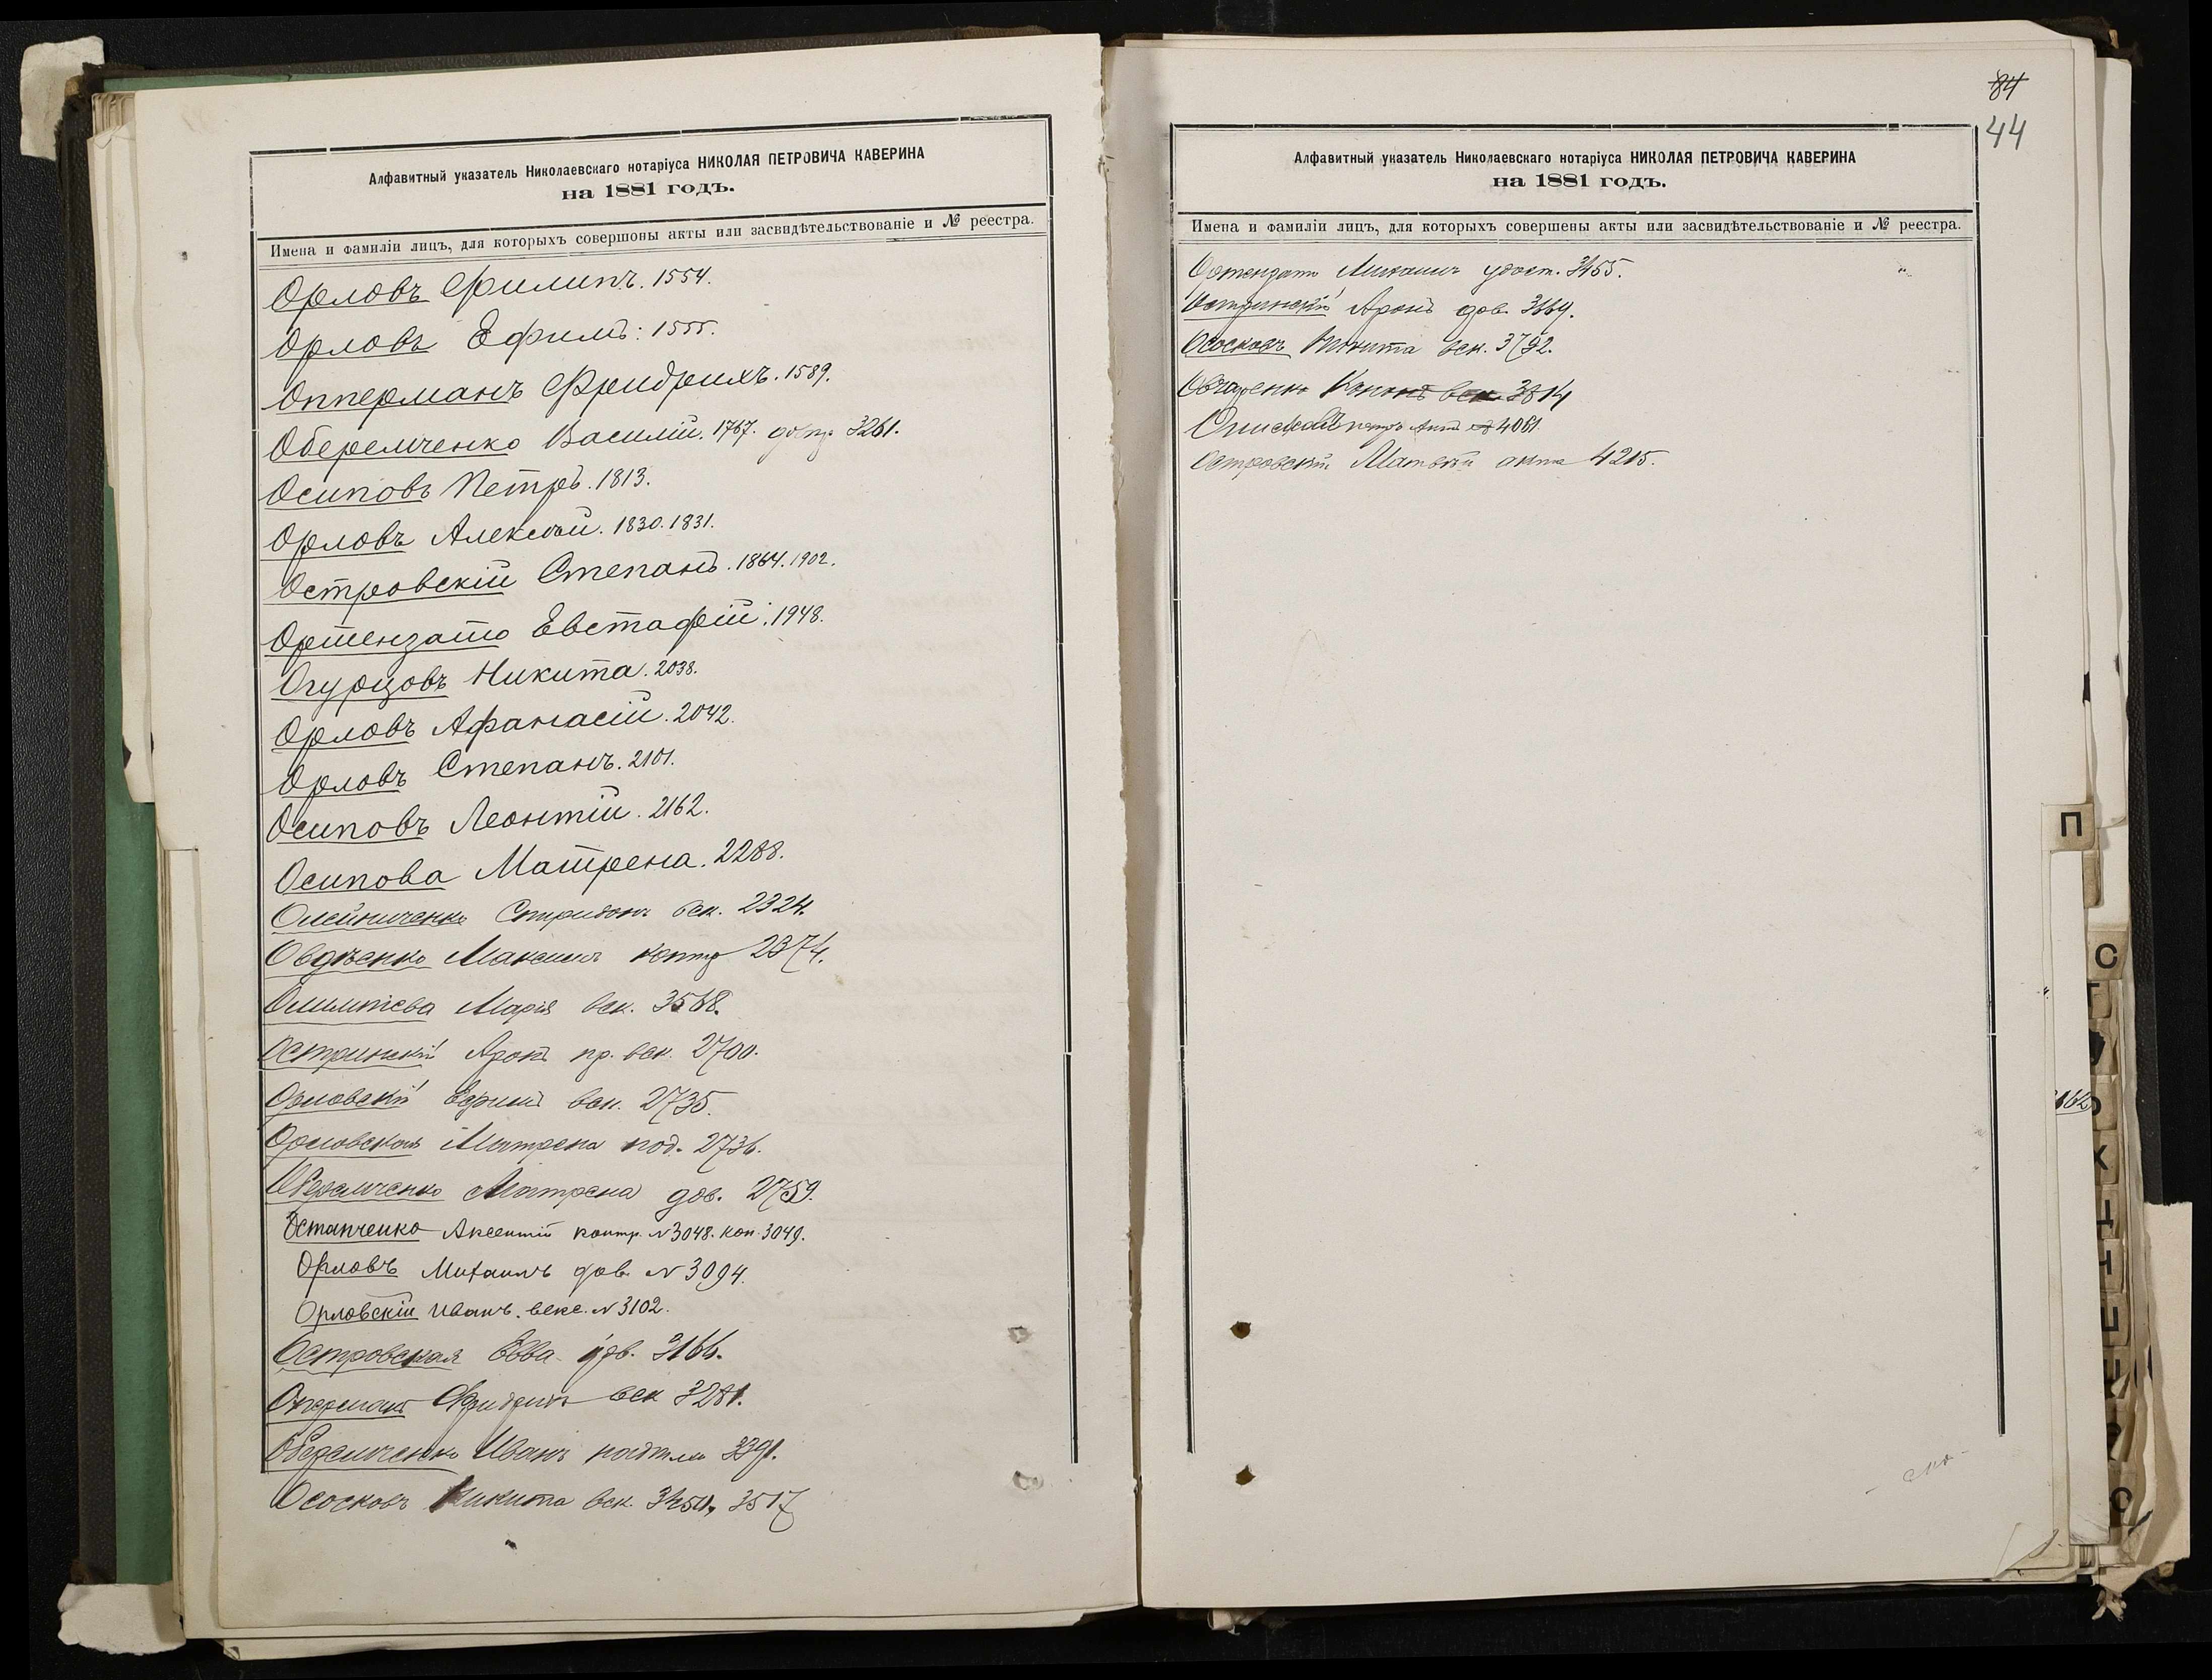 Алфавитный указатель Николаевскаго нотаріуса НИКОЛАЯ ПЕТРОВИЧА КАВЕРИНА
на 1881 годъ.
Имена и фамиліи лицъ, для которыхъ совершоны акты или засвидѣтельствованіе и № реестра.
Орловъ Филипъ. 1554.
Орловъ Ефимъ: 1555.
Опперманъ Фридрихъ. 1589.
Оберемченко Василій. 1767. 3261.
Осиповъ Петръ. 1813.
Орловъ Алексѣй. 1830. 1831.
Островскій Степанъ. 1864. 1902.
Ортензато Евстафій. 1948.
Огурцовъ Никита. 2038.
Орловъ Афанасій. 2042.
Орловъ Степанъ. 2101.
Осиповъ Леонтій. 2162.
Осипова Матрена. 2288.
Олейниченко Спиридонъ век. 2324.
Овдѣенко Максимъ контр 2374.
Марія век. 3568.
Остринскій Аронъ пр. век. 2700.
Орловскій Ефимъ век. 2735.
Орловская Матрена под. 2736.
Оберемченко Матрена дов. 2759.
Остапченко Аксентій контр. N 3048. коп. 3049.
Орловъ Михаилъ дов. N 3094.
Орловскій Иванъ. векс. N 3102.
Островская Евва 3166.
Опперманъ Фридрихъ век 3281.
Оберемченко Иванъ 3391.
Ососковъ Никита век. 3450, 3517
84
44
Алфавитный указатель Николаевскаго нотаріуса НИКОЛАЯ ПЕТРОВИЧА КАВЕРИНА
на 1881 годъ.
Имена и фамиліи лицъ, для которыхъ совершены акты или засвидѣтельствованіе и № реестра.
Ортензато Михаилъ удост. 3455.
Остринскій Аронъ дов. 3669.
Ососковъ Никита век. 3792.
Овчаренко век. 3814
4061.
Островскій акта 4215.
П
С